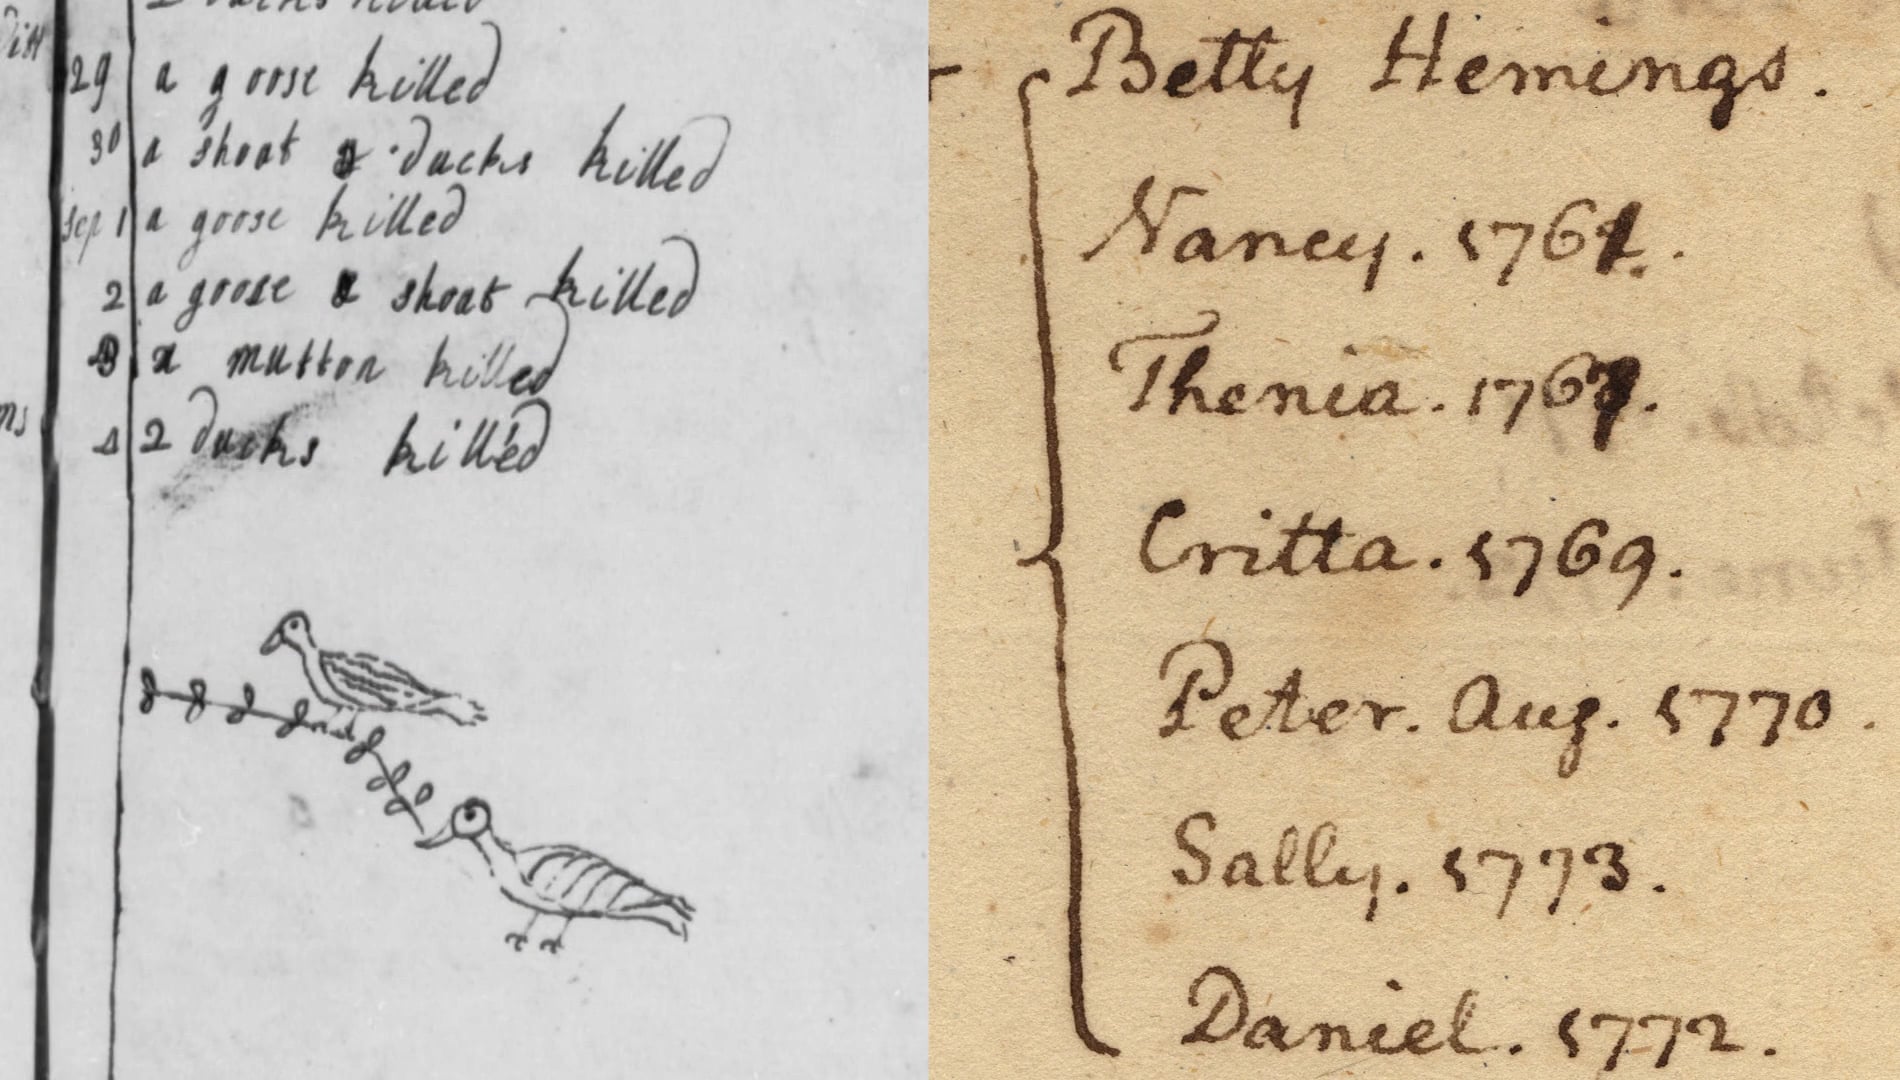 2 ducks killed
29 a goose killed
30 a shoat & ducks killed
sep 1 a goose killed
2 a goose & shoat killed
3 a mutton killed
4 2 ducks kill'ed
Betty Hemings.
Nancy. 1761.
Thenia. 1767.
Critta. 1769.
Peter. Aug. 1770.
Sally. 1773.
Daniel. 1772.